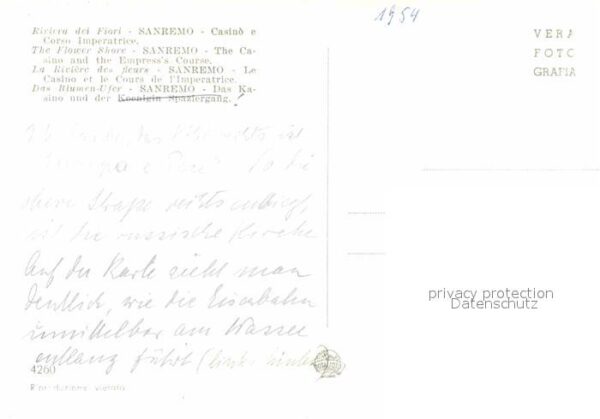 1954
Riviera dei Fiori - SANREMO - Casinò e
Corso Imperatrice.
The Flower Shore - SANREMO - The Ca-
sino and the Empress's Course.
La Rivière des fleurs - SANREMO - Le
Casino et le Cours de l'Imperatrice.
Das Blumen-Ufer - SANREMO - Das Ka-
sino und der Koenigin Spaziergang.!
VERA
FOTO
GRAFIA
rechts ist
Wo die
obere Straße rechts
ist die russische Kirche
Auf der Karte sieht man
deutlich, wie die Eisenbahn
unmittelbar am Wasser
entlang führt (links hinten
4260
Riproduzione vietata
privacy protection
Datenschutz